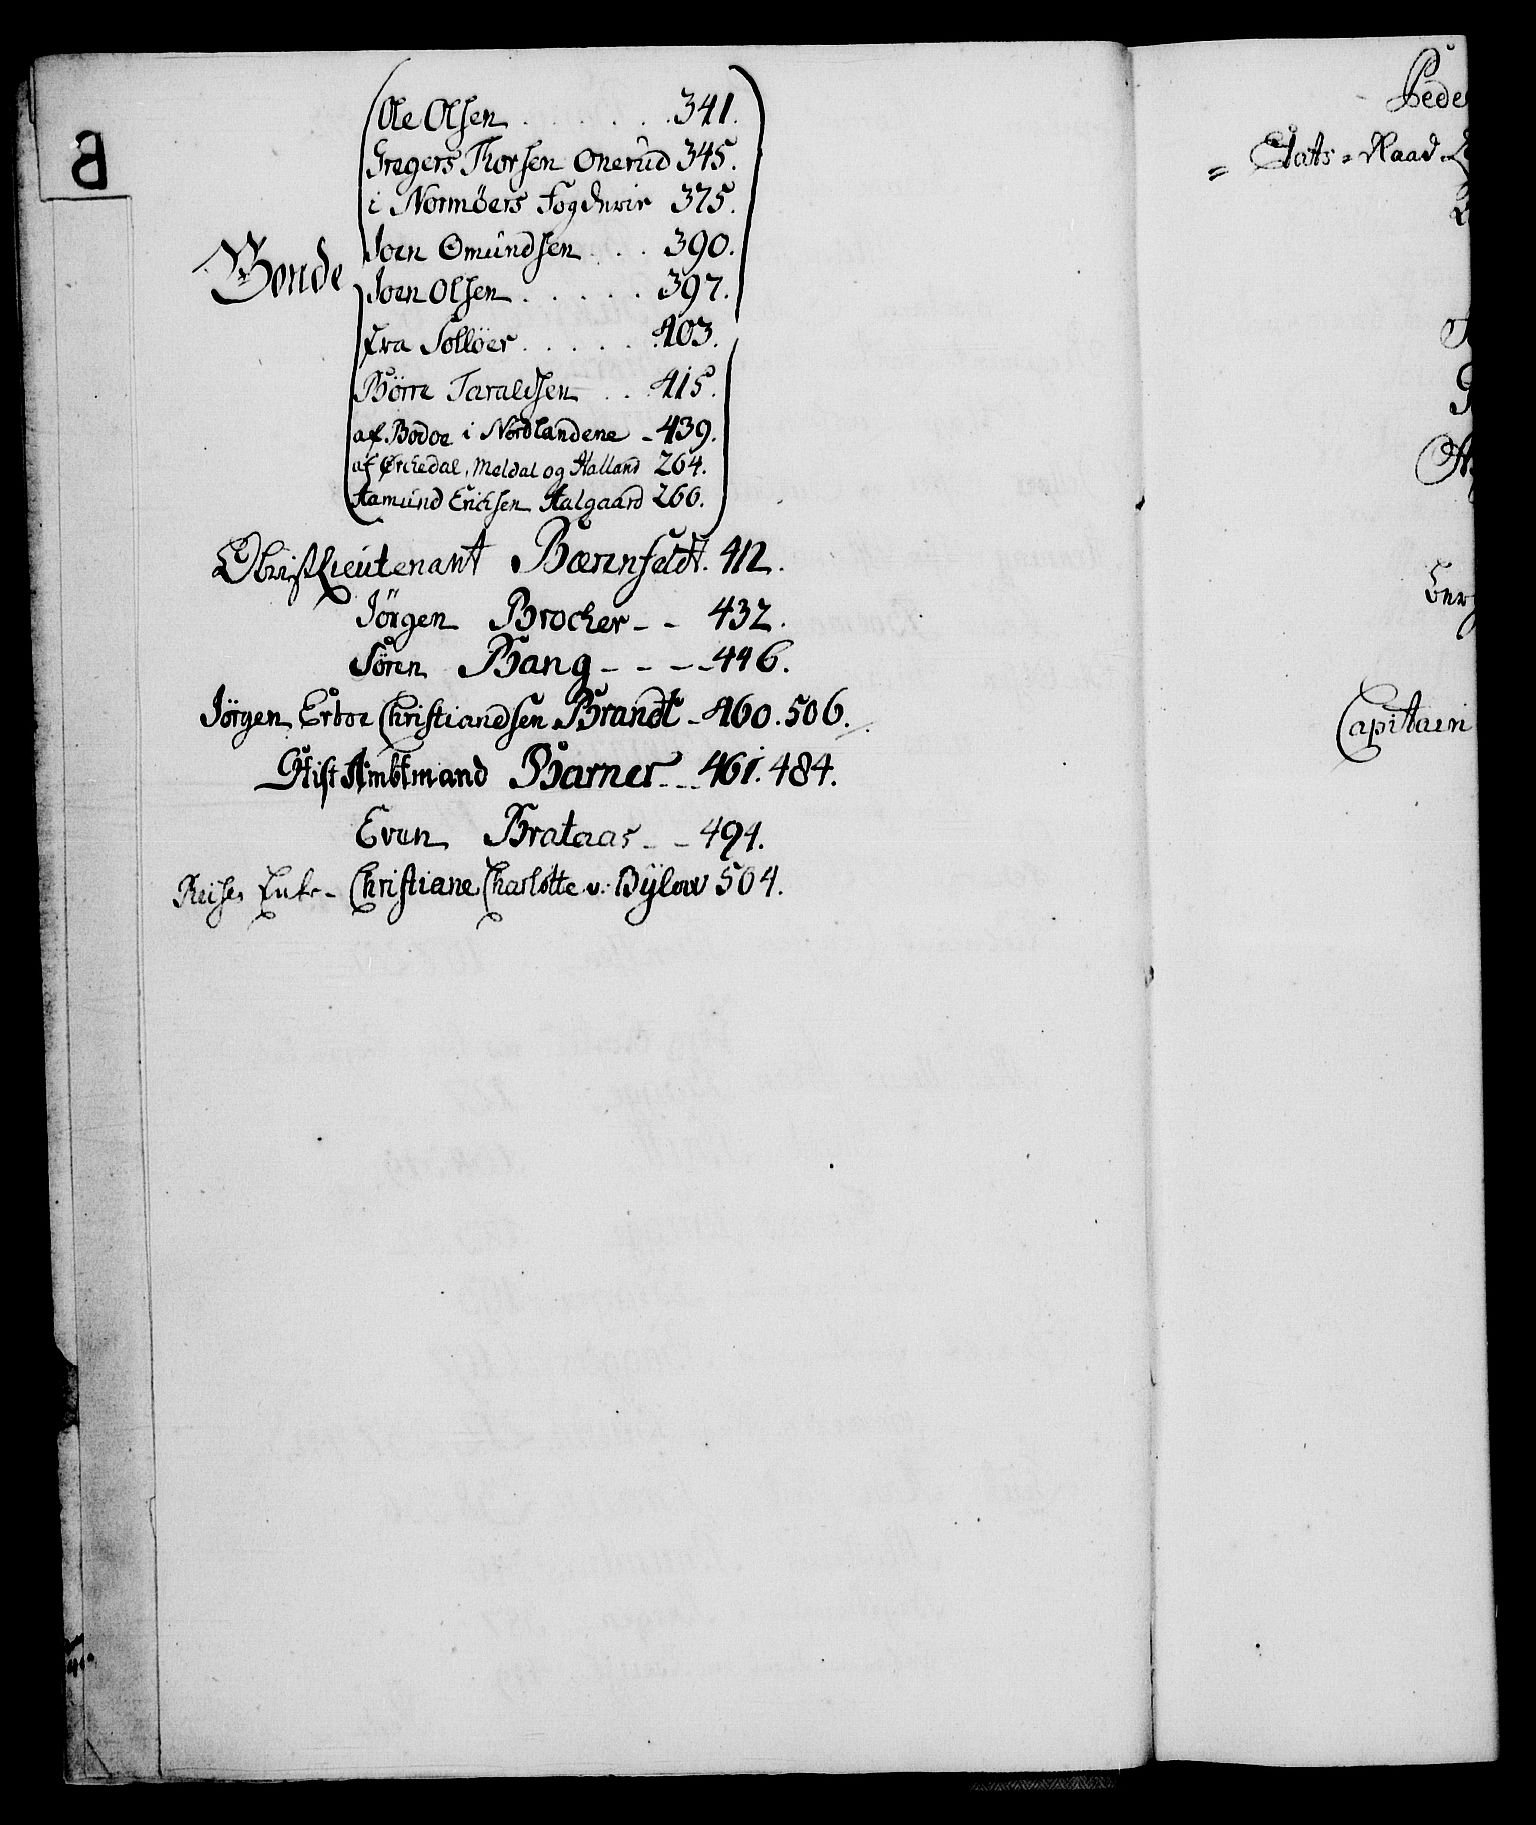 B
Ole Olsen . . . . . . . 341.
Gregers Thorsen Onerud 345.
i Normöers Fogderie 375.
Bonde
Joen Omundsen . . . 390.
Joen Olsen . . . . . . 397.
fra Sollöer . . . . . . 403.
Börre Taraldsen . . . 415.
af Bodoe i Nordlandene - 439.
af Örckedal, Meldal og Stalland 264.
Aamund Erichsen Aalgaard 266.
Obrist Lieutenant Bærenfeldt. 412.
Jörgen Brocher - - 432.
Sören Bang - - - - 446.
Jörgen Erboe Christiandsen Brandt - 460. 506.
Stift Ambtmand Barner - - - 461. 484.
Even Brataas - - 494.
Enke - Christiane Charlotte v: Bÿlow 504.
Pede
= Etats = Raad
Capitain